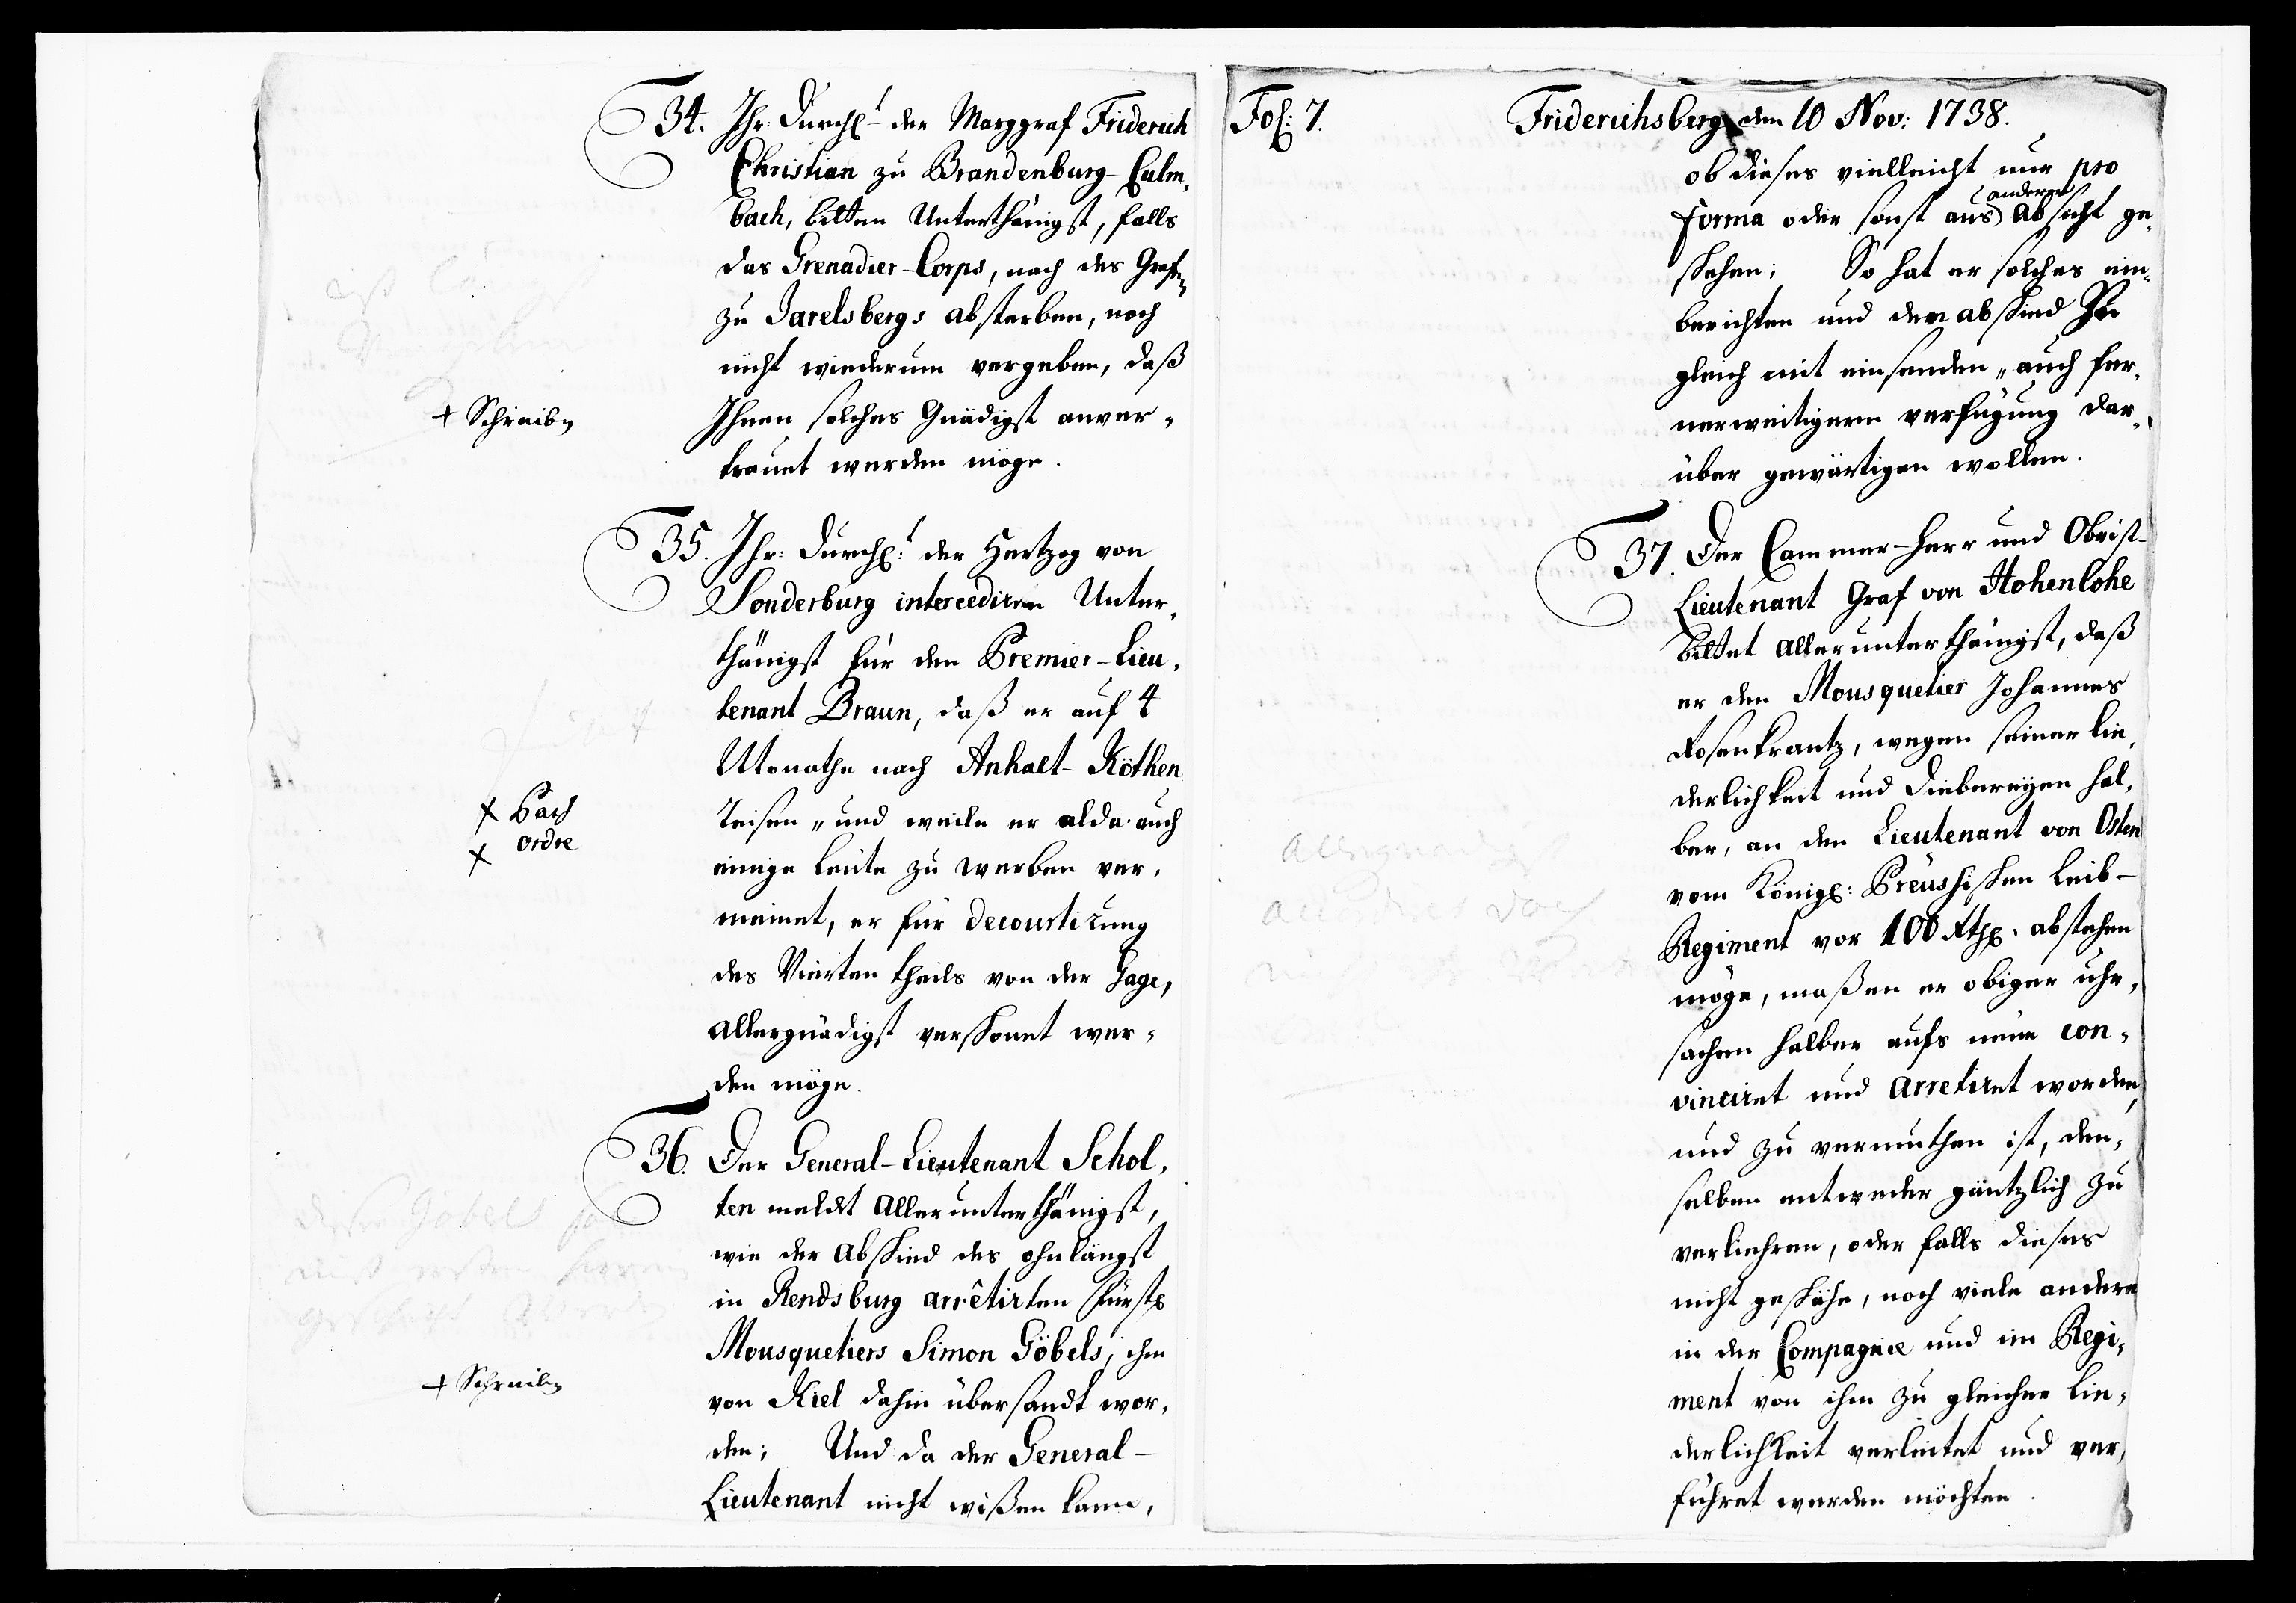 34. Ihr: Durchl.t der Marggraf Friderich
Christian zu Brandenburg-Culm-
bach, bitten Unterthänigst, falls
das Grenadier-Corps, nach des Grafen
zu Jarelsbergs absterben, noch
nicht wiederum vergeben, daß
+ Schreiben
Ihnen solches Gnädigst anver-
trauet werden möge.
35. Ihr: Durchl:t der Hertzog von
Sonderburg intercediren Unter-
thänigst für den Premier-Lieu-
tenant Braun, daß er auf 4
Monathe nach Anhalt-Köthen
+ Paß
reisen, und weile er alda auch
+ ordre
einige Leute zu werben ver-
meinet, er für decourtirung
des Vierten theils von der Gage,
allergnädigst verschonet wer-
den möge.
36. Der General-Lieutenant Schol-
ten meldet allerunterthänigst,
wie der abschied des ohnlängst
in Rendsburg arrêtirten Fürstl
Mousquetiers Simon Göbels, ihm
+ Schreiben
von Kiel dahin übersandt wor-
den; Und da der General-
Lieutenant nicht wißen kann,
Fol: 7.
Friderichsberg den 10 Nov: 1738.
ob dieses vielleicht nur pro
anderer
forma oder sonst aus absicht ge-
schehen; So hat er solches ein-
berichten und den abschied Zu
gleich mit einsenden, auch fer-
nerweitigere verfügung dar-
über gewärtigen wollen.
37. Der Cammer-Herr und Obrist-
Lieutenant Graf von Hohenlohe
bittet allerunterthänigst, daß
er den Mousquetier Johannes
Rosenkrantz, wegen seiner lie-
derlichkeit und Diebereyen hal-
ber, an den Lieutenant von Osten
vom Königl: Preussischen Leib-
Regiment vor 100 Rthl. abstehen
möge, maßen er obiger uhr-
sachen halber aufs neue con-
vinciret und arretiret worden,
und zu vermuthen ist, den-
selben entweder gäntzlich zu
verliehren, oder falls dieses
nicht geschähe, noch viele andere
in der Compagnie und im Regi-
ment von ihm zu gleicher lie-
derlichkeit verleitet und ver-
führet werden möchten.